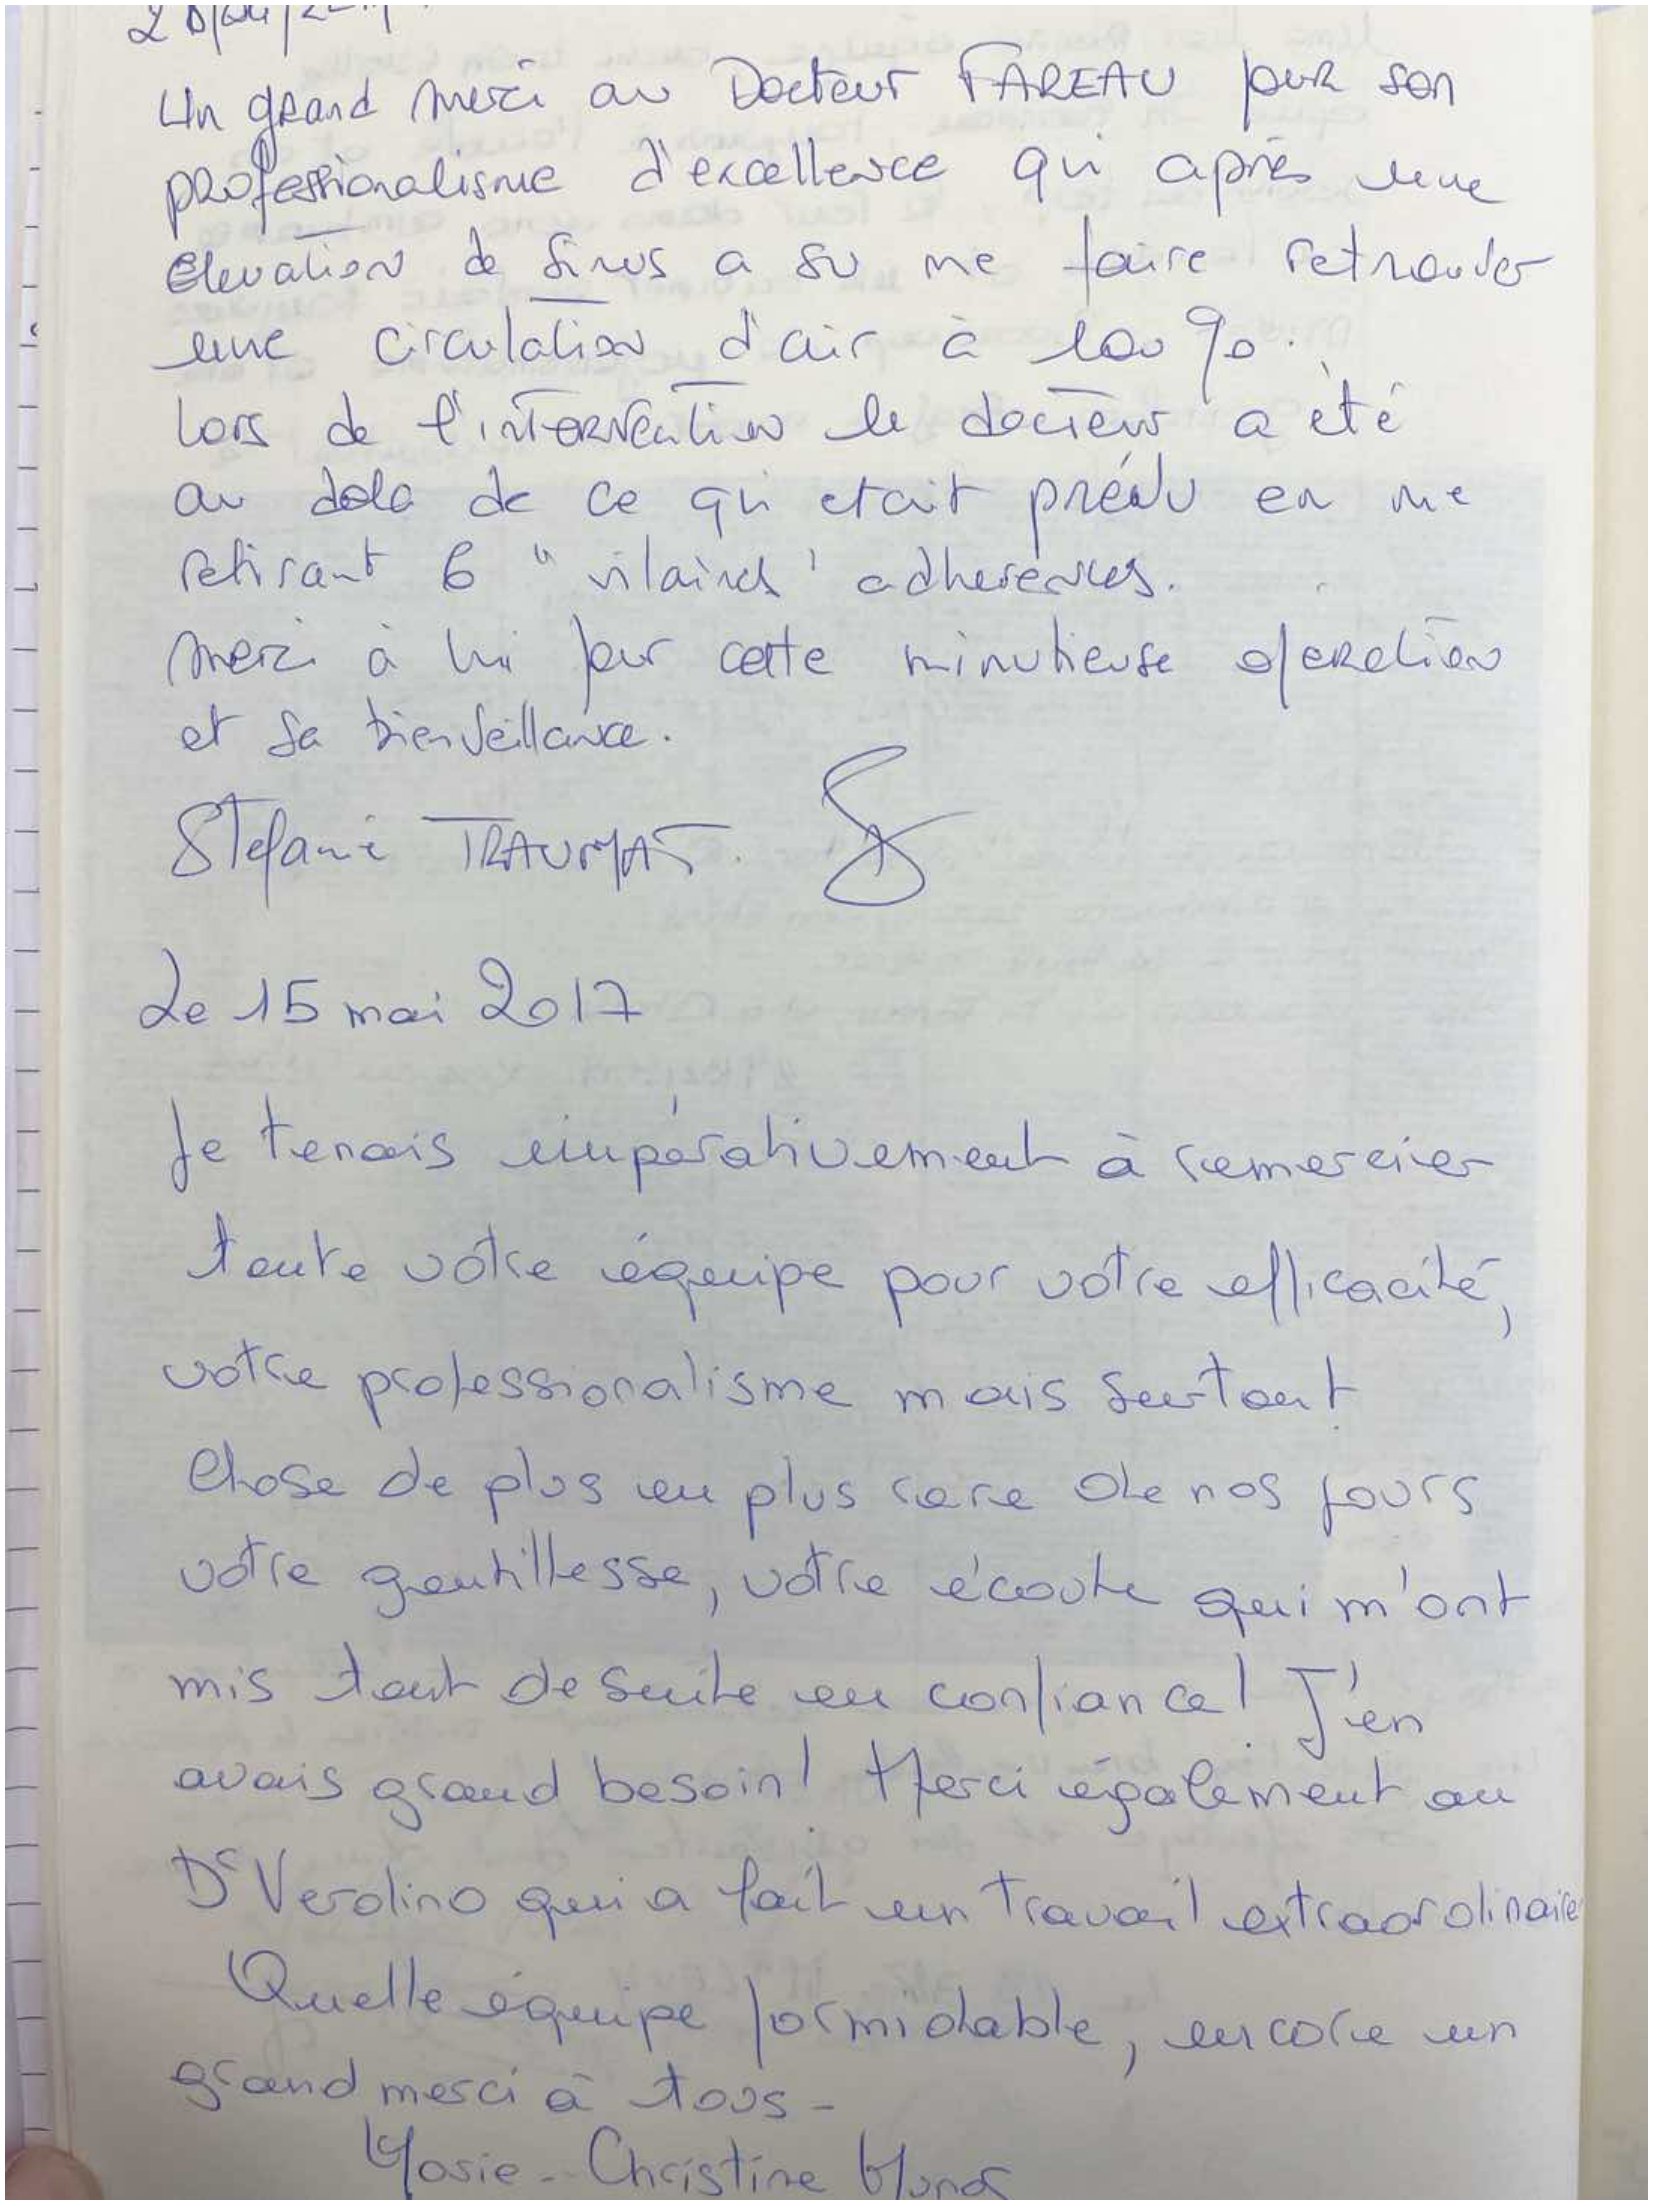 Un grand merci au Docteur FAREAU pour son
professionalisme d'excellence qui après une
élevation de sinus a su me faire retrouver
une circulation d'air à 100%.
Lors de l'intervention le docteur a été
au dela de ce qui etait prévu en me
retirant 6 "vilaines" adherences.
Merci à lui pour cette minutieuse operation
et sa bienveillance.
Stefanie
Le 15 mai 2017
Je tenais impérativement à remercier
toute votre équipe pour votre efficacité,
votre professionalisme mais surtout
Chose de plus en plus rare de nos jours
votre gentillesse, votre écoute qui m'ont
mis tout de suite en confiance! J'en
avais grand besoin! Merci également au
Dr Verdino qui a fait un travail extraordinaire
Quelle équipe formidable, encore un
grand merci à tous -
Marie-Christine